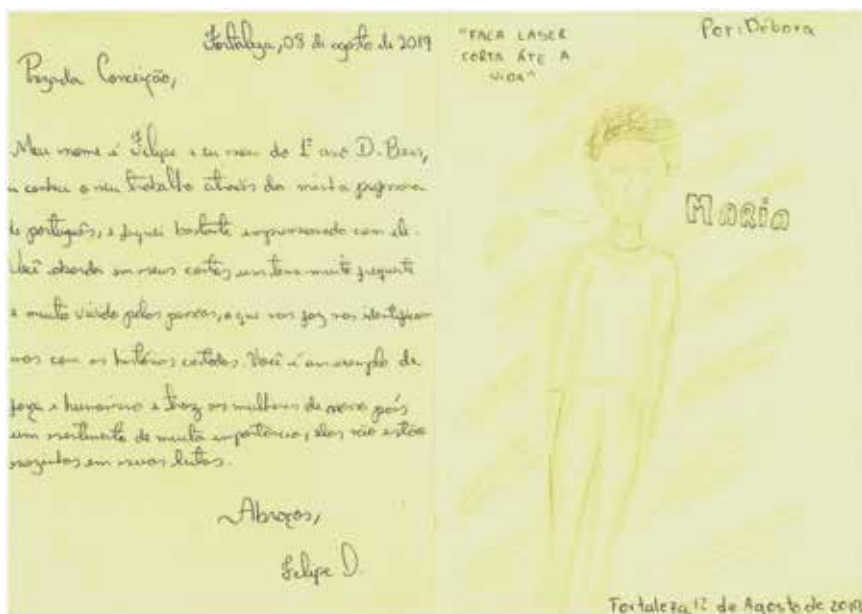 Fortaleza, 08 de agosto de 2019
Prezada Conceição,
Meu nome é Felipe e eu sou do 1º ano D.
conheci o seu trabalho através da minha professora
de português, e fiquei bastante impressionado com ele.
Você aborda em seus contos um tema muito frequente
e muito vivido pelas pessoas, o que nos faz nos
nos com as histórias contadas. Você é um exemplo de
força e humanismo e traz as mulheres de nosso país
um sentimento de muita importância, elas não estão
sozinhas em suas lutas.
Abraços,
Felipe D.
"FACA LASER
CORTA ÁTE A
VIDA"
Por: Débora
MARIA
Fortaleza 12 de Agosto de 2019